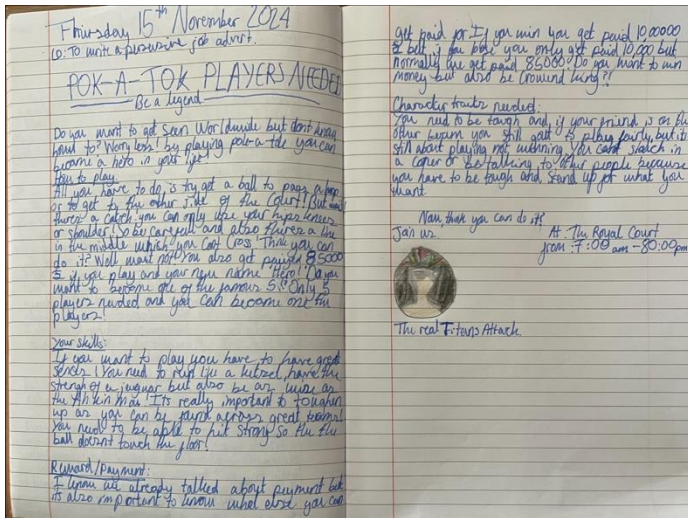 Thursday 15th November 2024
LO: To write a persuasive job advert.
POK-A-TOK PLAYERS NEEDED
Be a legend
Do you want to get seen Worldwide but don't know
how to? Worry less! by playing pok-a-tok you can
become a hero in your life!
How to play:
All you have to do, is try get a ball to pass a hoop
or to get to the other side of the court! But
there's a catch, you can only use your hips knees
or shoulder! So be carefull and also theres a line
in the middle which you cant Cross! Think you can
do it? Well, You also get payed 85000
if you play and your new name 'Hero'! Do you
want to become one of the famous 5? Only 5
players needed and you can become one the
players!
Your skills:
If you want to play you have to have great
senses! You need to run like a ketzel, have the
strengh of a jaguar but also be as wise as
the Ah kin mai! It's really important to toughen
up as you can be against across great teams!
You need to be able to hit strong so the the
ball doesnt touch the floor!
Reward/Payment:
I know we already talked about payment but
its also important to know what else you can
get paid for. If you win you get paid 100000
but if you lose you only get paid 10,000 but
normally we get paid 85000. Do you want to win
money but also be Crownd king?!
Character traits needed:
You need to be tough and if your friend is on the
other team you still gotta play fairly, but it's
still about playing not winning. You cant stand in
a corner or be talking to other people because
you have to be tough and stand up for what you
want.
Now, think you can do it?
Join us. At The Royal Court
from: 7:00am - 80:00pm
The real Titans Attack